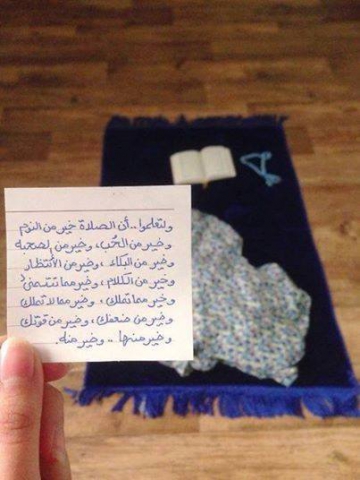 ولتعلموا.. أن الصلاة خير من النوم
وخير من الحُب، وخير من الصحبه
وخير من البكاء، وخير من الأنتظار
وخير من الكلام، وخير مما تتسمنى
وخير مما تملك، وخير مما لا تملك
وخير من ضعفك، وخير من قوتك
وخير منها.. وخير منه.